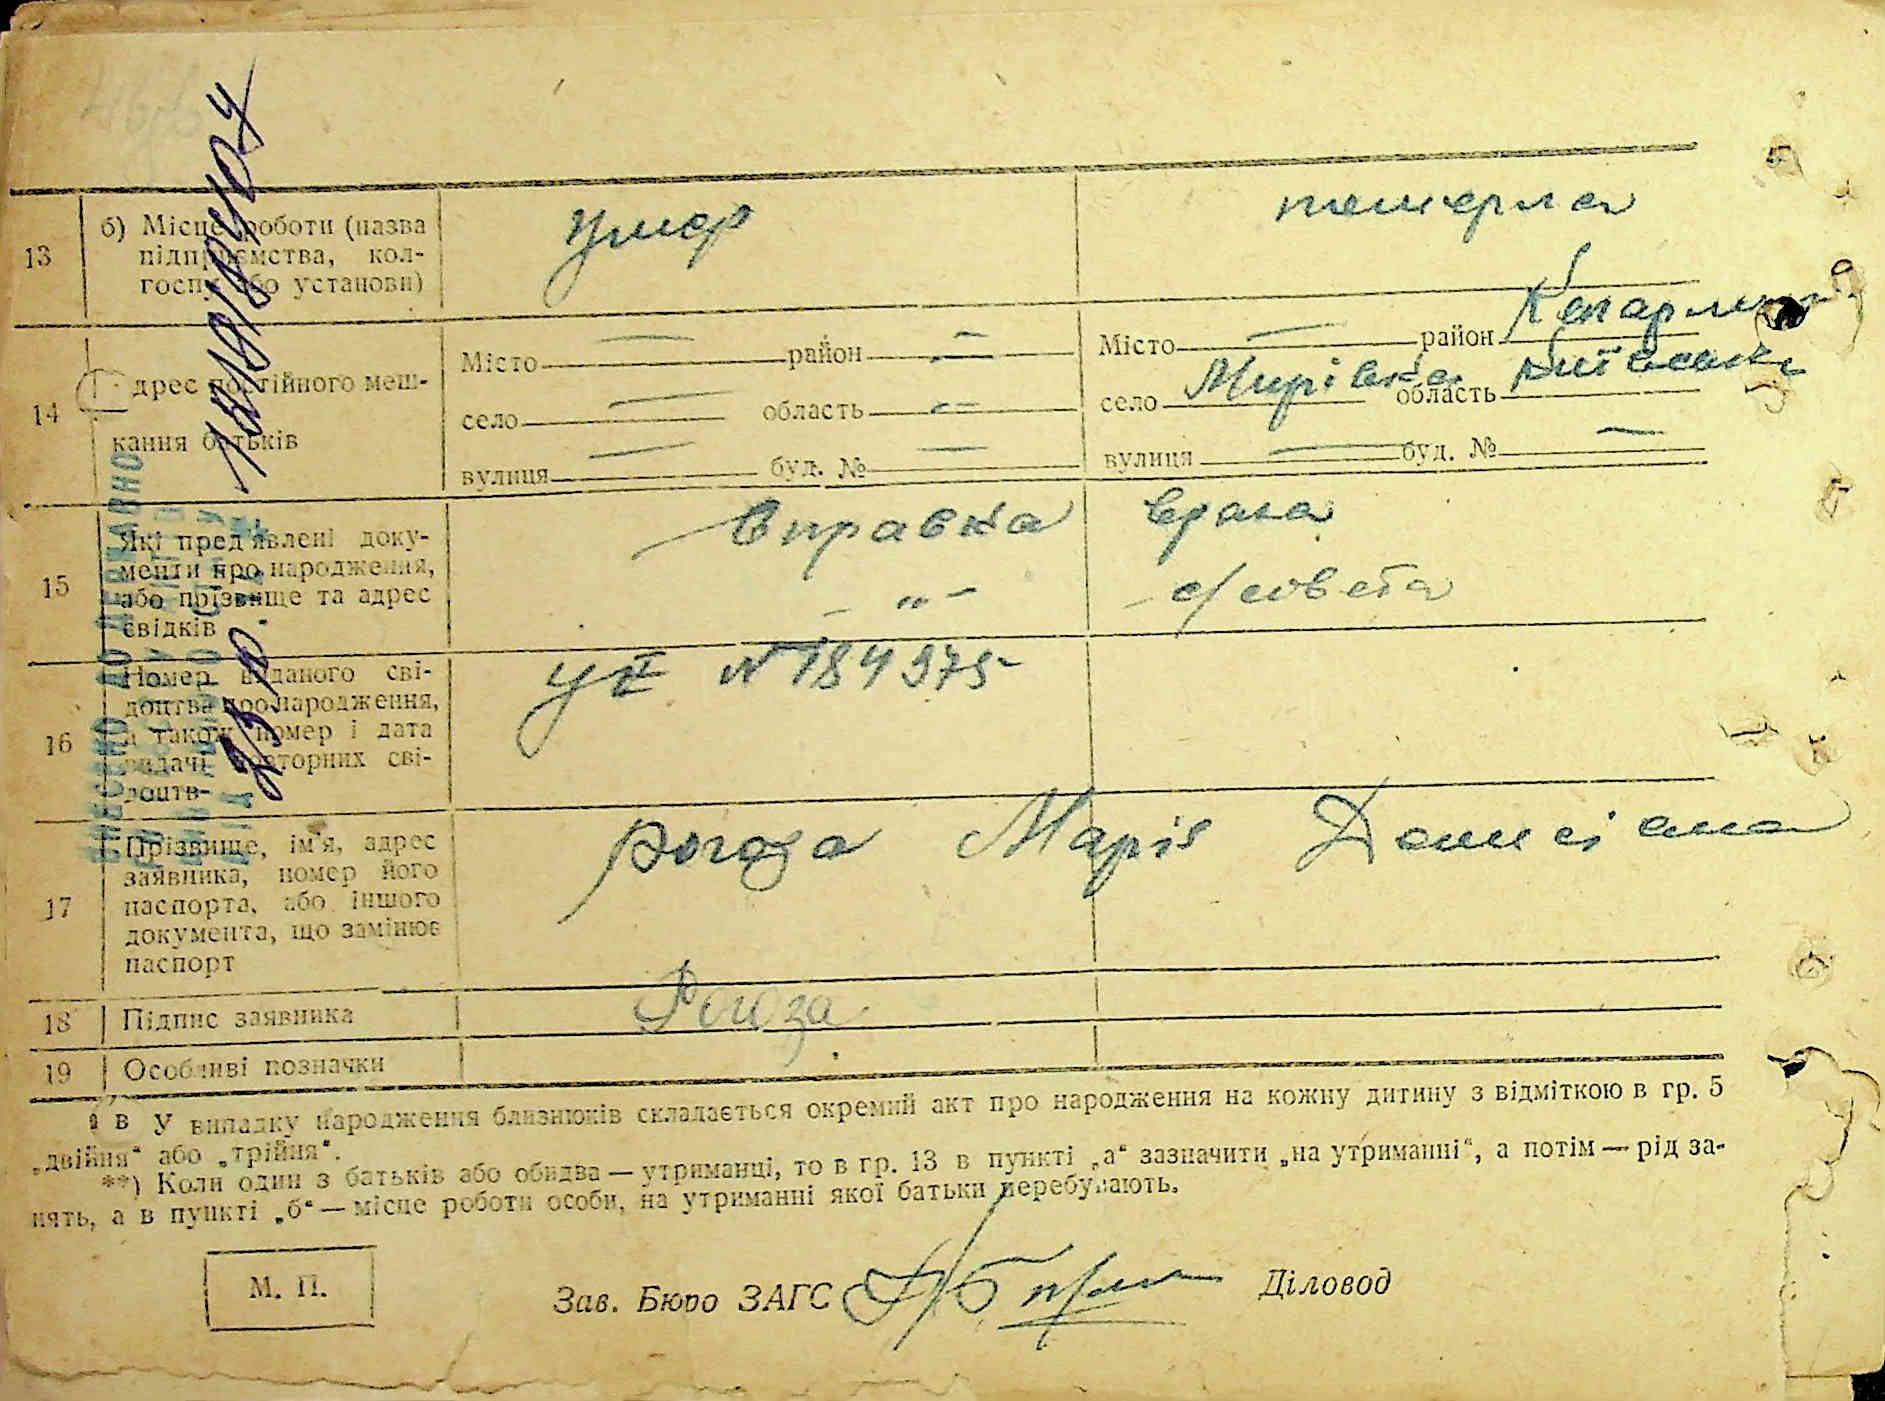 13
б) Місце роботи (назва
підприємства, кол-
госпу або установи)
умер
померла
14
Адрес постійного меш-
кання батьків
Місто — район —
село — область —
вулиця — буд. № —
Місто — район Кагарлик
село Мирівка область Київська
вулиця — буд. № —
15
Які пред'явлені доку-
менти про народження,
або прізвище та адрес
свідків
Справка врача
— „ — с/совета
16
Номер виданого сві-
доцтва про народження,
а також номер і дата
видачі повторних сві-
доцтв
УЕ № 184975
17
Прізвище, ім'я, адрес
заявника, номер його
паспорта, або іншого
документа, що замінює
паспорт
Рогоза Марія
18
Підпис заявника
Рогоза
19
Особливі позначки
В У випадку народження близнюків складається окремий акт про народження на кожну дитину з відміткою в гр. 5
„двійня“ або „трійня“.
**) Коли один з батьків або обидва — утриманці, то в гр. 13 в пункті „а“ зазначити „на утриманні“, а потім — рід за-
нять, а в пункті „б“ — місце роботи особи, на утриманні якої батьки перебувають.
М. П.
Зав. Бюро ЗАГС
Діловод
ВНЕСЕНО ДО ДЕРЖАВНО